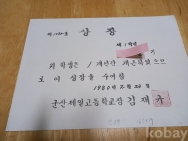 상장
위 학생은 1개년간 개근하였으
로 이 상장을 수여함
1980년 2월 20일
군산제일고등학교장 김재규
kobay